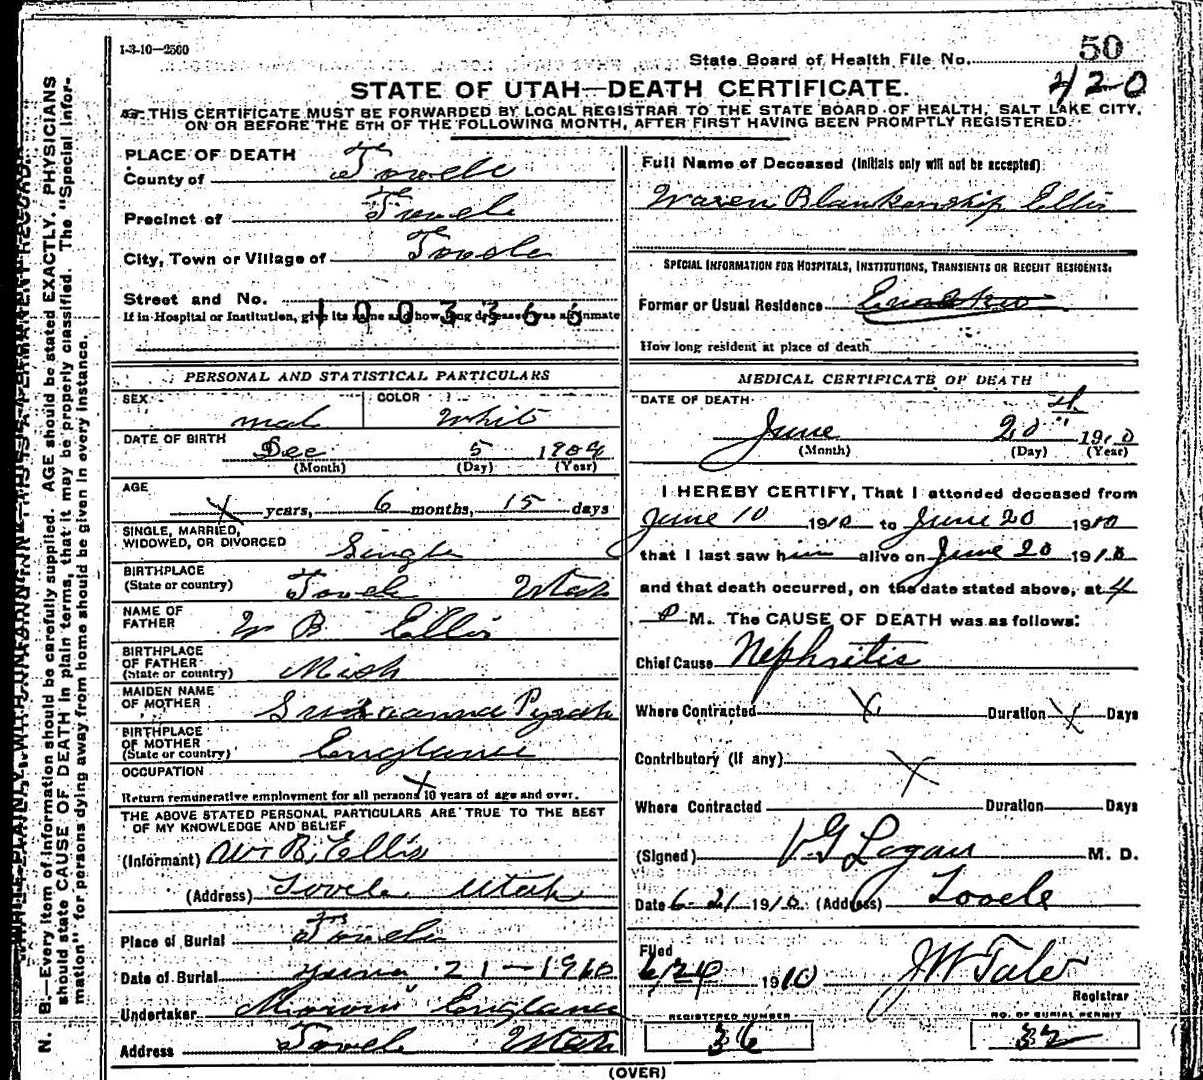 1-3-10—2500
State Board of Health File No. 50
420
STATE OF UTAH—DEATH CERTIFICATE.
THIS CERTIFICATE MUST BE FORWARDED BY LOCAL REGISTRAR TO THE STATE BOARD OF HEALTH, SALT LAKE CITY,
ON OR BEFORE THE 5TH OF THE FOLLOWING MONTH, AFTER FIRST HAVING BEEN PROMPTLY REGISTERED.
PLACE OF DEATH
County of Tooele
Precinct of Tooele
City, Town or Village of Tooele
Street and No.
1003366
If in Hospital or Institution, give its name and how long deceased was an inmate
PERSONAL AND STATISTICAL PARTICULARS
SEX COLOR
mal White
DATE OF BIRTH
Dec 5 1909
(Month) (Day) (Year)
AGE
X years, 6 months, 15 days
SINGLE, MARRIED,
WIDOWED, OR DIVORCED Single
BIRTHPLACE
(State or country) Tooele Utah
NAME OF
FATHER W B Ellis
BIRTHPLACE
OF FATHER
(State or country) Mich
MAIDEN NAME
OF MOTHER
BIRTHPLACE
OF MOTHER
(State or country) England
OCCUPATION X
Return remunerative employment for all persons 10 years of age and over.
THE ABOVE STATED PERSONAL PARTICULARS ARE TRUE TO THE BEST
OF MY KNOWLEDGE AND BELIEF
(Informant) W. B. Ellis
(Address) Tooele Utah
Place of Burial Tooele
Date of Burial June 21—1910
Undertaker Moroni England
Address Tooele Utah
Full Name of Deceased (Initials only will not be accepted)
Waren Blankenship Ellis
SPECIAL INFORMATION FOR HOSPITALS, INSTITUTIONS, TRANSIENTS OR RECENT RESIDENTS.
Former or Usual Residence
How long resident at place of death
MEDICAL CERTIFICATE OF DEATH
DATE OF DEATH
June 20th 1910
(Month) (Day) (Year)
I HEREBY CERTIFY, That I attended deceased from
June 10 1910 to June 20 1910
that I last saw him alive on June 20 1910
and that death occurred, on the date stated above, at 4
P M. The CAUSE OF DEATH was as follows:
Chief Cause Nephritis
Where Contracted X Duration X Days
Contributory (if any) X
Where Contracted Duration Days
(Signed) Logan M. D.
Date 6-21 1910 (Address) Tooele
Filed
6/24 1910
Registrar
REGISTERED NUMBER
36
NO. OF BURIAL PERMIT
32
(OVER)
WRITE PLAINLY, WITH UNFADING INK—THIS IS A PERMANENT RECORD.
N. B.—Every item of information should be carefully supplied. AGE should be stated EXACTLY. PHYSICIANS
should state CAUSE OF DEATH in plain terms, that it may be properly classified. The "Special Infor-
mation" for persons dying away from home should be given in every instance.